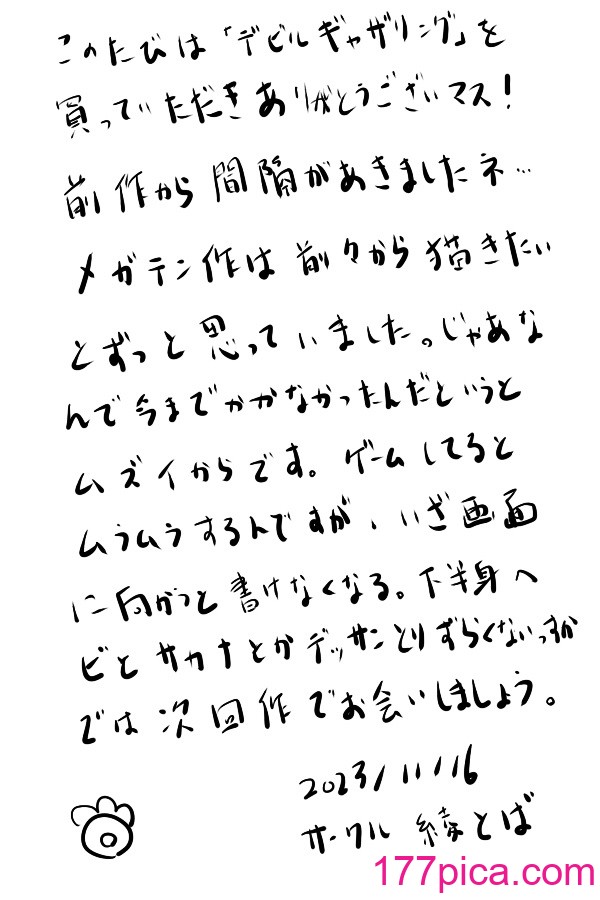 このたびは「デビルギャザリング」を
買っていただきありがとうございマス!
前作から間隔があきましたネ…
メガテン作は前々から描きたい
とずっと思っていました。じゃあな
んで今までかかなかったんだというと
ムズイからです。ゲームしてると
ムラムラするんですが、いざ画面
に向かうと書けなくなる。下半身へ
ビとサカナとかデッサンとりずらくないっすか
では次回作でお会いしましょう。
2023/11/16
サークル 綾とば
177pica.com